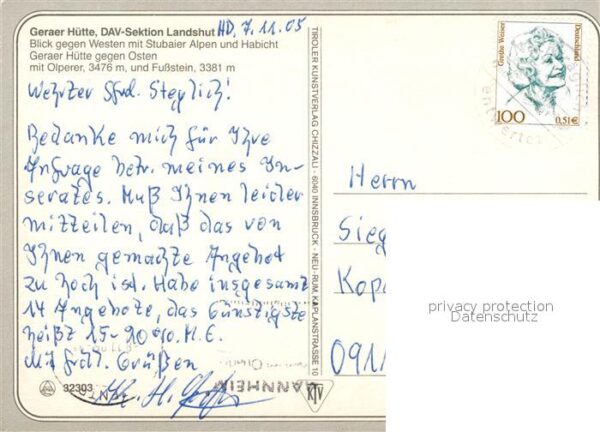 Geraer Hütte, DAV-Sektion Landshut HD, 7.11.05
Blick gegen Westen mit Stubaier Alpen und Habicht
Geraer Hütte gegen Osten
mit Olperer, 3476 m, und Fußstein, 3381 m
Werter Sfrd. Steglich!
Bedanke mich für Ihre
Anfrage betr. meines In-
serates. Muß Ihnen leider
mitteilen, daß das von
Ihnen gemachte Angebot
zu hoch ist. Habe insgesamt
14 Angebote, das Günstigste
heißt 15-20% M.E.
Mit frdl. Grüßen
32303
MANNHEIM
KTV
TIROLER KUNSTVERLAG CHIZZALI · 6040 INNSBRUCK - NEU-RUM, KAPLANSTRASSE 10
Grethe Weiser
Deutschland
100
0,51€
Herrn
Sieg
Kopa
0911
privacy protection
Datenschutz